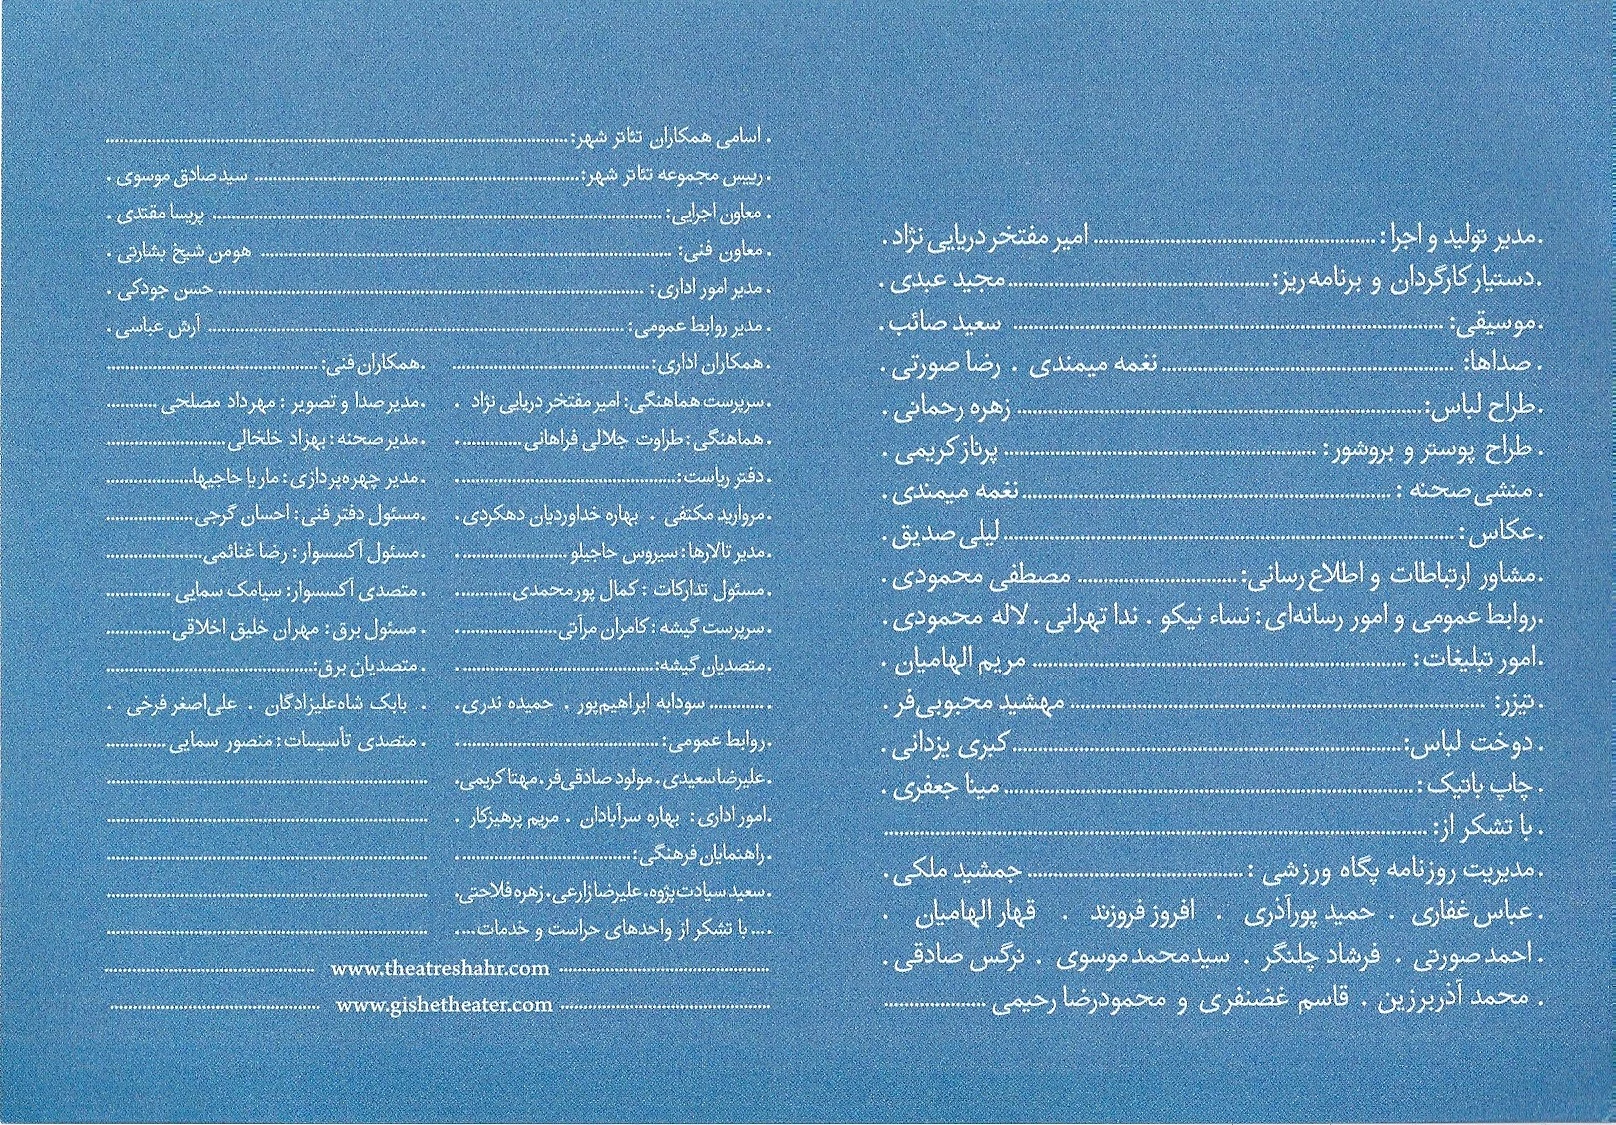 .مدیر تولید و اجرا:.......... امیر مفتخر دریایی نژاد.
.دستیار کارگردان و برنامه ریز:..........مجید عبدی.
.موسیقی:.......... سعید صائب.
. صداها: ..........نغمه میمندی . رضا صورتی.
.طراح لباس:.......... زهره رحمانی.
. طراح پوستر و بروشور: .......... پرناز کریمی.
. منشی صحنه : ..........نغمه میمندی.
.عکاس: ..........لیلی صدیق.
.مشاور ارتباطات و اطلاع رسانی:.......... مصطفی محمودی.
.روابط عمومی و امور رسانه‌ای: نساء نیکو . ندا تهرانی. لاله محمودی.
.امور تبلیغات: .......... مریم الهامیان.
.تیزر: .......... مهشید محبوبی‌فر.
. دوخت لباس:..........کبری یزدانی.
. چاپ باتیک:.......... مینا جعفری.
. با تشکر از: ..........
.مدیریت روزنامه پگاه ورزشی : ..........جمشید ملکی.
. عباس غفاری . حمید پورآذری . افروز فروزند . قهار الهامیان .
. احمد صورتی . فرشاد چلنگر . سیدمحمد موسوی . نرگس صادقی.
. محمد آذربرزین . قاسم غضنفری و محمودرضا رحیمی ..........
. اسامی همکاران تئاتر شهر: ..........
. رییس مجموعه تئاتر شهر:.......... سید صادق موسوی .
. معاون اجرایی: .......... پریسا مقتدی .
. معاون فنی: .......... هومن شیخ بشارتی .
. مدیر امور اداری: .......... حسن جودکی .
. مدیر روابط عمومی: .......... آرش عباسی .
. همکاران اداری: ..........
.سرپرست هماهنگی: امیر مفتخر دریایی نژاد .
. هماهنگی: طراوت جلالی فراهانی ..........
. دفتر ریاست: ..........
.مروارید مکتفی . بهاره خداوردیان دهکردی.
.مدیر تالارها: سیروس حاجیلو ..........
. مسئول تدارکات : کمال پورمحمدی..........
.سرپرست گیشه : کامران مرآتی..........
. متصدیان گیشه:..........
............ سودابه ابراهیم‌پور . حمیده ندری.
.روابط عمومی:..........
.علیرضا سعیدی. مولود صادقی‌فر. مهتا کریمی.
.امور اداری: بهاره سرآبادان . مریم پرهیزکار .
. راهنمایان فرهنگی:..........
.سعید سیادت پژوه. علیرضا زارعی. زهره فلاحتی.
.... با تشکر از واحدهای حراست و خدمات....
.همکاران فنی: ..........
.مدیر صدا و تصویر : مهرداد مصلحی ..........
.مدیر صحنه: بهزاد خلخالی..........
. مدیر چهره‌پردازی: ماریا حاجیها..........
.مسئول دفتر فنی: احسان گرجی..........
. مسئول آکسسوار: رضا غنائمی..........
. متصدی آکسسوار: سیامک سمایی ..........
. مسئول برق: مهران خلیق اخلاقی ..........
. متصدیان برق: ..........
. بابک شاه‌علیزادگان . علی‌اصغر فرخی .
. متصدی تأسیسات: منصور سمایی ..........
.......... www.theatreshahr.com ..........
.......... www.gishetheater.com ..........